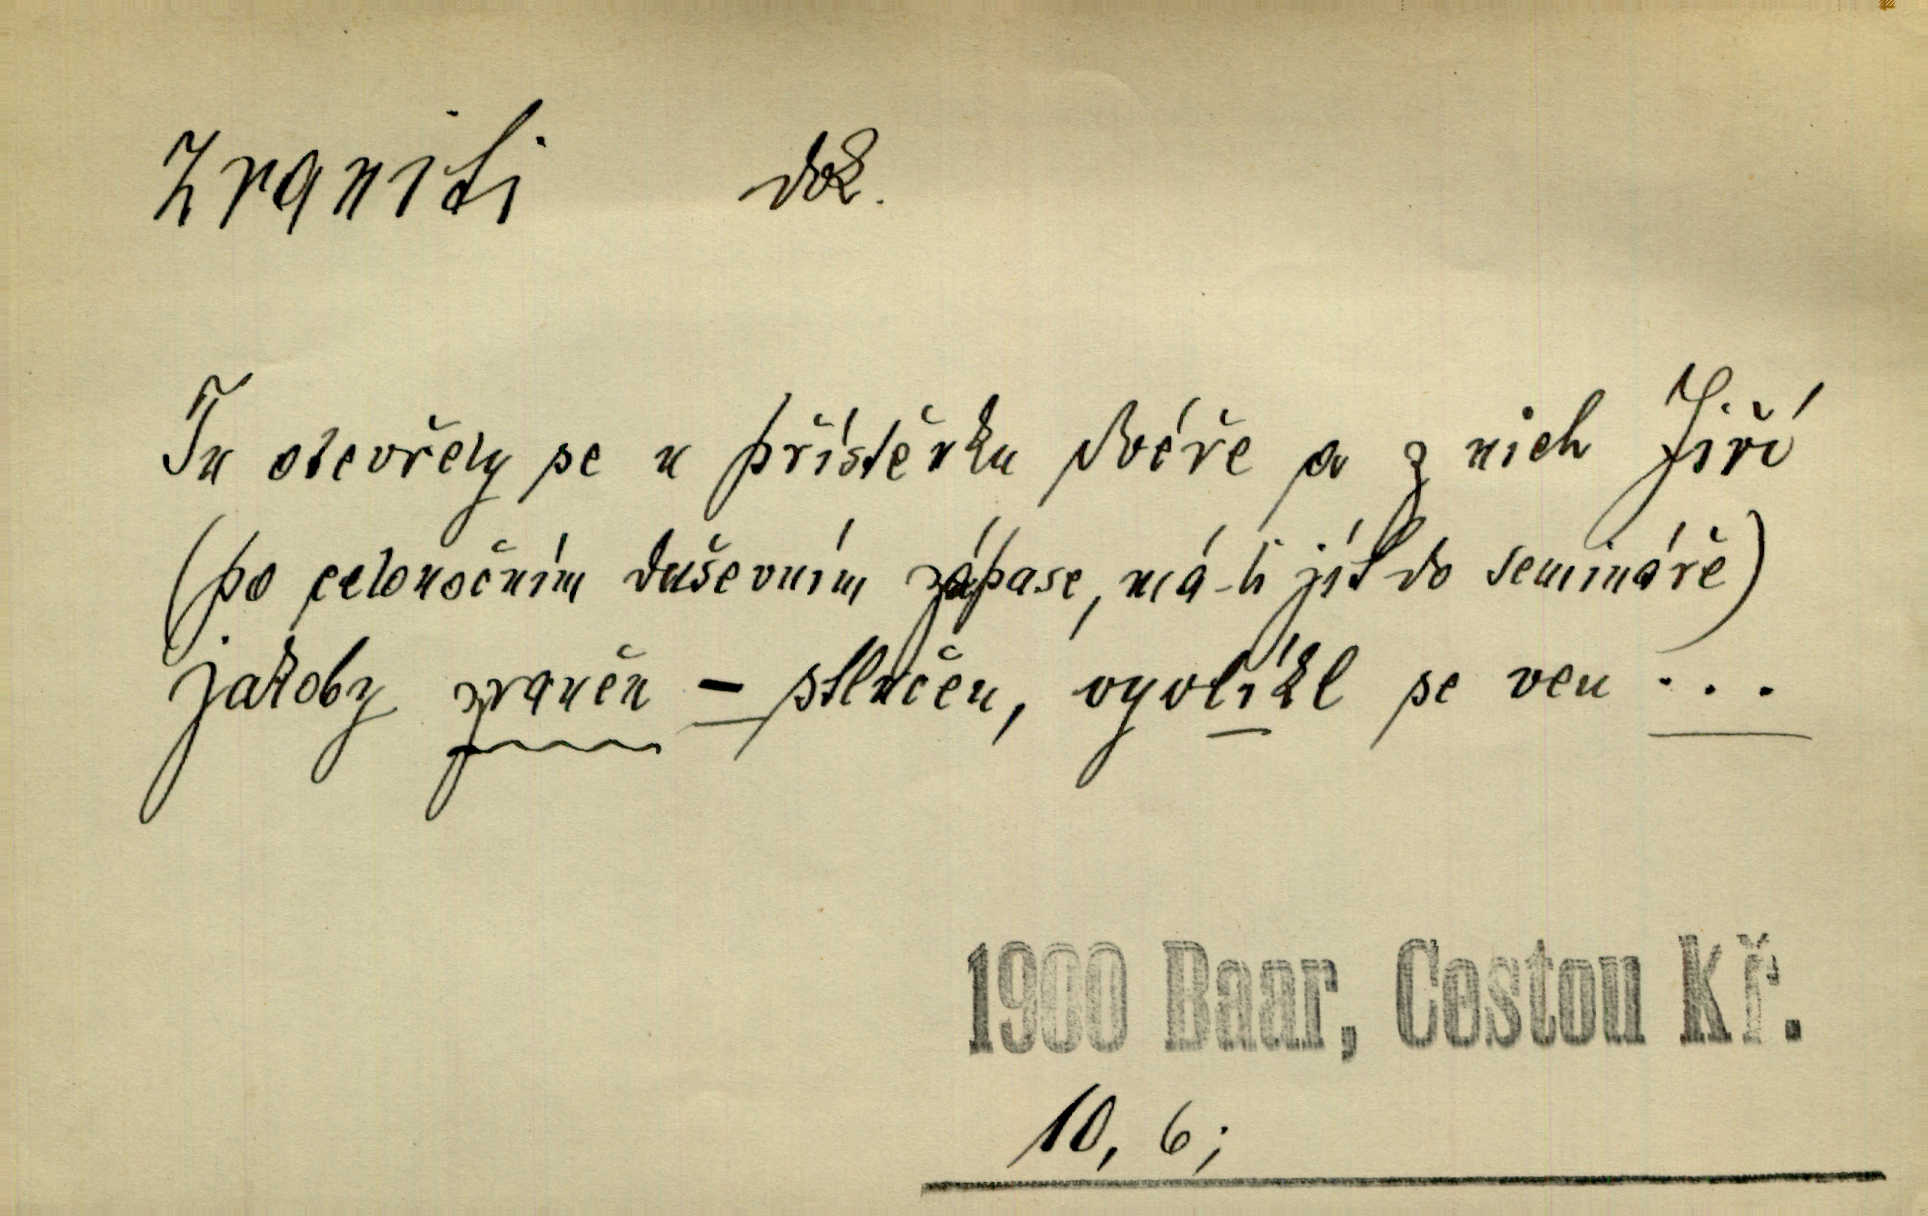 zraniti dok.
Tu otevřely se u přístěnku dvéře a z nich Jiří
(po celonočním duševním zápase, má-li jít do semináře)
jakoby zraněn – stlučen, vyvlíkl se ven . . .
1900 Baar, Cestou Kř.
10, 6;